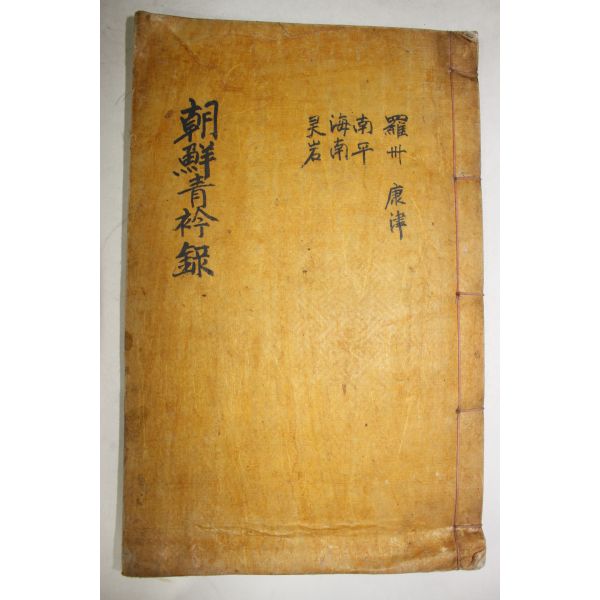 羅州 康津
南平
海南
灵岩
朝鮮青衿錄